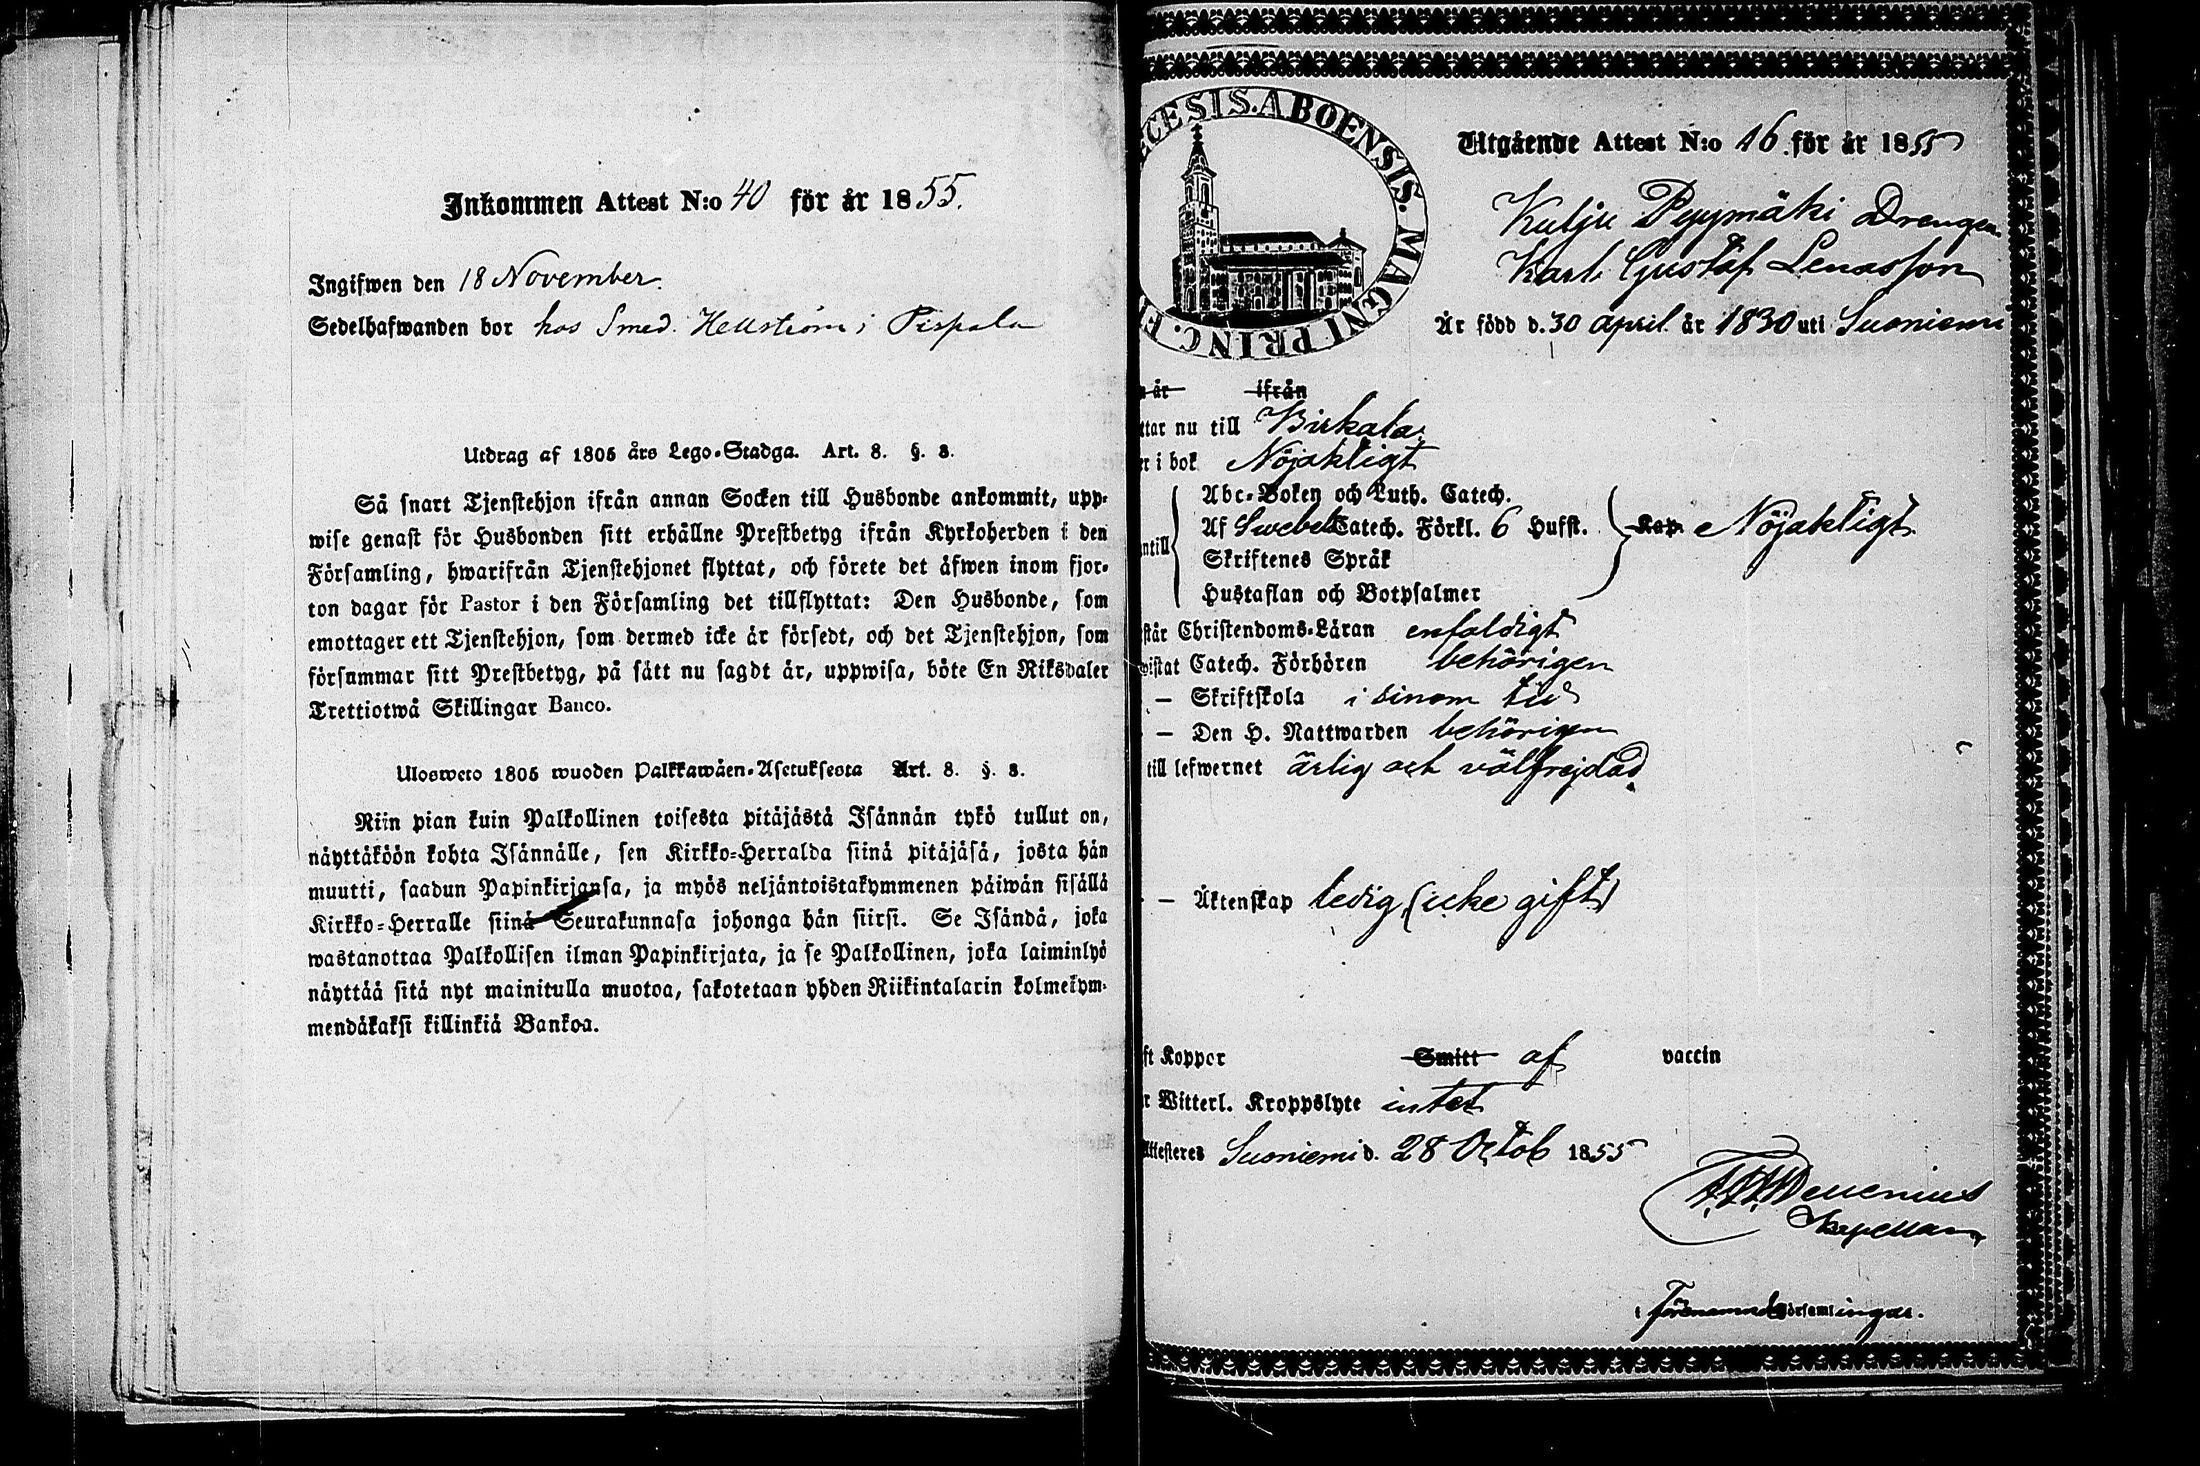 Inkommen Attest N:o 40 för år 1855.
Ingifwen den 18 November.
Sedelhafwanden bor hos Smed. Hellström i Pispala
Utdrag af 1805 års Lego-Stadga. Art. 8. §. 8.
Så snart Tjenstehjon ifrån annan Socken till Husbonde ankommit, upp-
wise genast för Husbonden sitt erhållne Prestbetyg ifrån Kyrkoherden i den
Församling, hwarifrån Tjenstehjonet flyttat, och förete det äfwen inom fjor-
ton dagar för Pastor i den Församling det tillflyttat: Den Husbonde, som
emottager ett Tjenstehjon, som dermed icke är försedt, och det Tjenstehjon, som
försummar sitt Prestbetyg, på sätt nu sagdt är, uppwisa, böte En Riksdaler
Trettiotwå Skillingar Banco.
Ulosweto 1805 wuoden Palkkawäen-Asetuksesta Art. 8. §. 8.
Niin pian kuin Palkollinen toisesta pitäjästä Isännän tykö tullut on,
näyttäköön kohta Isännälle, sen Kirkko-Herralda siinä pitäjäsä, josta hän
muutti, saadun Papinkirjansa, ja myös neljäntoistakymmenen päiwän sisällä
Kirkko-Herralle siinä Seurakunnasa johonga hän siirsi. Se Isändä, joka
wastanottaa Palkollisen ilman Papinkirjata, ja se Palkollinen, joka laiminlyö
näyttää sitä nyt mainitulla muotoa, sakotetaan yhden Riikintalarin kolmekym-
mendäkaksi killinkiä Bankoa.
ECESIS. ABOENSIS. MAGNI PRINC. F
Utgående Attest N:o 16 för år 1855
Kulju Pyymäki Drengen
Karl Gustaf Lenasson
Är född d. 30 april år 1830 uti Suoniemi
år ifrån
ttar nu till Birkala
r i bok Nöjaktligt
Abc-Boken och Luth. Catech.
Af Swebel. Catech. Förkl. 6 Hufst.
Kap. Nöjaktligt
ntill
Skriftenes Språk
Hustaflan och Botpsalmer
står Christendoms-Läran enfaldigt
wistat Catech. Förhören behörigen
— Skriftskola i sinom tid
— Den H. Nattwarden behörigen
till lefwernet ärlig och välfrejdad
— Äktenskap ledig (icke gift)
ft Koppor Smitt af vaccin
r Witterl. Kroppslyte intet
Attesteres Suoniemi d. 28 Octob 1855
Kapellan
i förenämnde Församlingar.